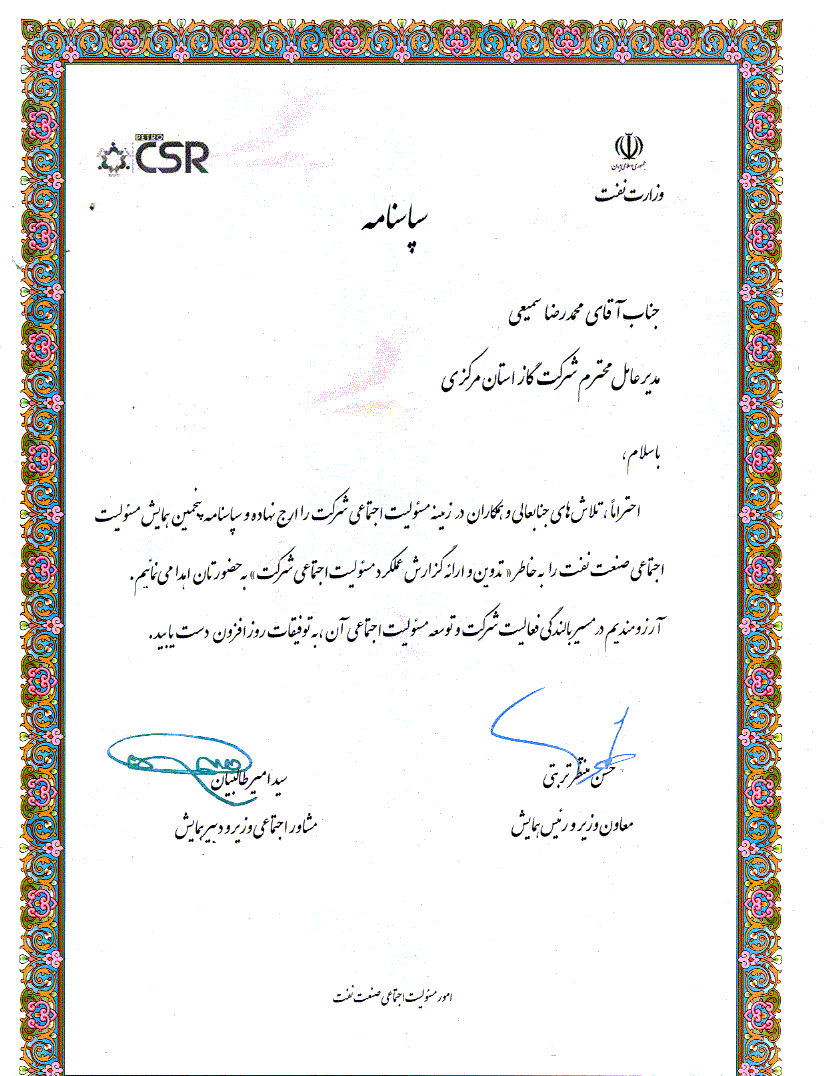 PETRO
CSR
جمهوری اسلامی ایران
وزارت نفت
سپاسنامه
جناب آقای محمدرضا سمیعی
مدیرعامل محترم شرکت گاز استان مرکزی
باسلام،
احتراماً، تلاش‌های جنابعالی و همکاران در زمینه مسئولیت اجتماعی شرکت را ارج نهاده و سپاسنامه پنجمین همایش مسئولیت
اجتماعی صنعت نفت را به خاطر «تدوین و ارائه گزارش عملکرد مسئولیت اجتماعی شرکت» به حضورتان اهدا می‌نمائیم.
آرزومندیم در مسیر بالندگی فعالیت شرکت و توسعه مسئولیت اجتماعی آن، به توفیقات روزافزون دست یابید.
حسن منتظر تربتی
معاون وزیر و رئیس همایش
سید امیر طالبیان
مشاور اجتماعی وزیر و دبیر همایش
امور مسئولیت اجتماعی صنعت نفت